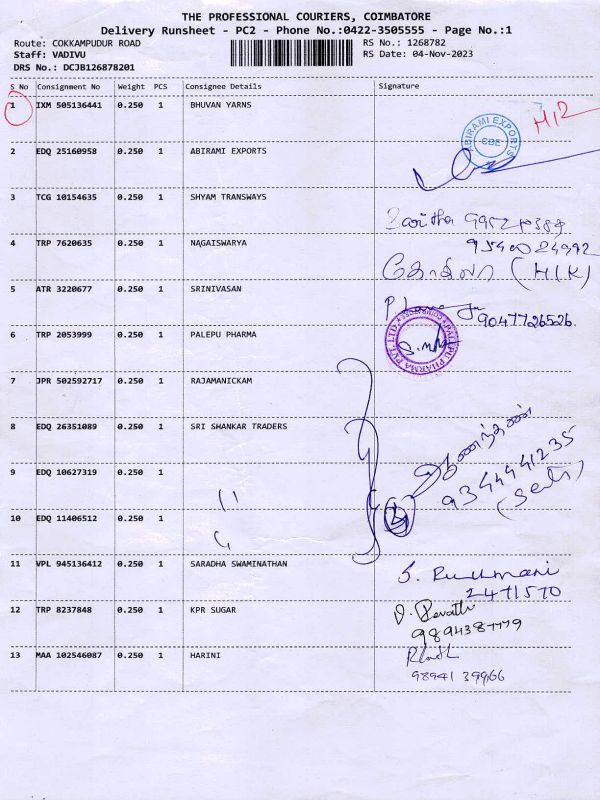 THE PROFESSIONAL COURIERS, COIMBATORE
Delivery Runsheet - PC2 - Phone No.:0422-3505555 - Page No.:1
Route: COKKAMPUDUR ROAD RS No.: 1268782
Staff: VADIVU RS Date: 04-Nov-2023
DRS No.: DCJB126878201
S No Consignment No Weight PCS Consignee Details Signature
1 IXM 505136441 0.250 1 BHUVAN YARNS
ABIRAMI EXPORTS CBE
2 EDQ 25160958 0.250 1 ABIRAMI EXPORTS
3 TCG 10154635 0.250 1 SHYAM TRANSWAYS
4 TRP 7620635 0.250 1 NAGAISWARYA
கோகிலா (H/K)
5 ATR 3220677 0.250 1 SRINIVASAN
9047726526
6 TRP 2053999 0.250 1 PALEPU PHARMA
PALEPU PHARMA PVT. LTD. COIMBATORE
7 JPR 502592717 0.250 1 RAJAMANICKAM
8 EDQ 26351089 0.250 1 SRI SHANKAR TRADERS
9344441235
9 EDQ 10627319 0.250 1
10 EDQ 11406512 0.250 1
11 VPL 945136412 0.250 1 SARADHA SWAMINATHAN
S. Rukmani
2471570
12 TRP 8237848 0.250 1 KPR SUGAR
D. Revathi
9894387779
13 MAA 102546087 0.250 1 HARINI
98941 39966